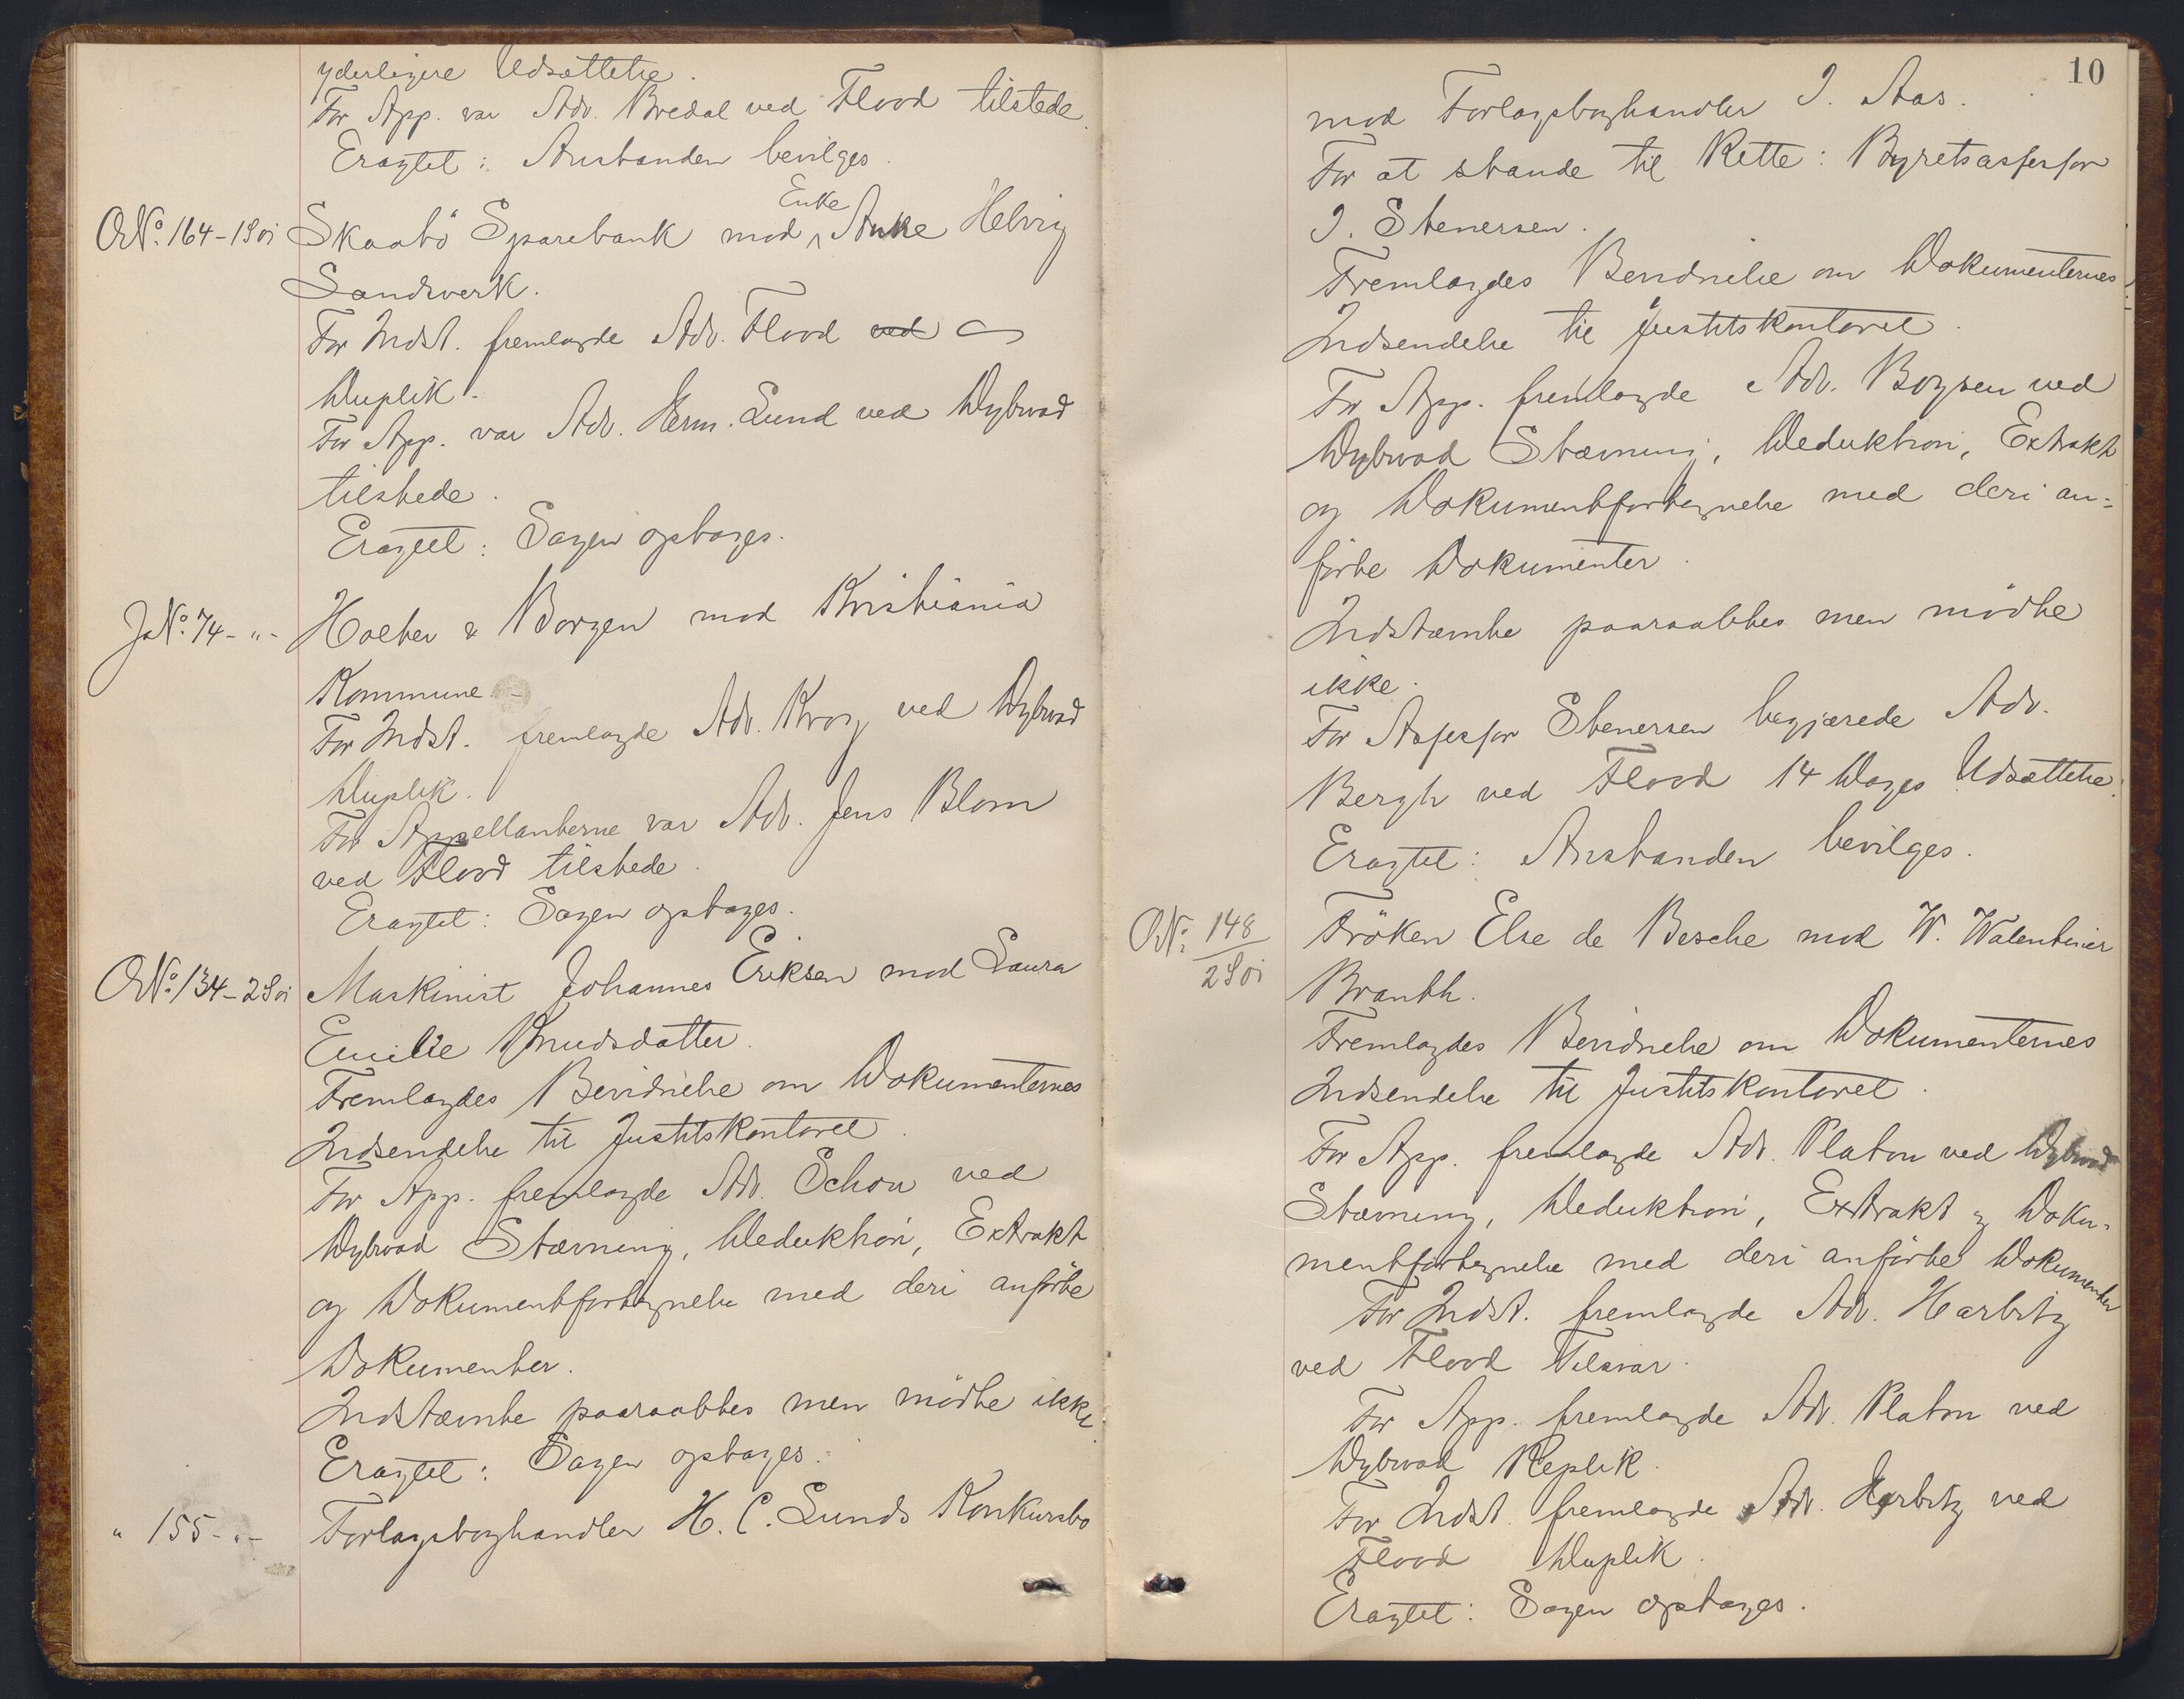 yderligere Udsættelse.
For App. var Adv. Bredal ved Flood tilstede.
Eragtet: Anstanden bevilges.
ONo. 164-1S01 Skaabö Sparebank mod Enke Anne Helvig
Sandsverk.
For Indst. fremlagde Adv. Flood ved
Duplik.
For App. var Adv. Herm. Lund ved Dybwad
tilstede.
Eragtet: Sagen optages.
JNo. 74- " - Hoeber & Borgen mod Kristiania
Kommune.
For Indst. fremlagde Adv. Krog ved Dybwad
Duplik.
For Appellanterne var Adv. Jens Blom
ved Flood tilstede.
Eragtet: Sagen optages.
ONo. 134-2S01 Maskinist Johannes Eriksen mod Laura
Emilie Knudsdatter.
Fremlagdes Bevidnelse om Dokumenternes
Indsendelse til Justitskontoret.
For App. fremlagde Adv. Schou ved
Dybwad Stævning, Deduktion, Extrakt
og Dokumentfortegnelse med deri anførte
Dokumenter.
Indstævnte paaraabtes men mödte ikke
Eragtet: Sagen optages.
" 155- " - Forlagsboghandler H. C. Lunds Konkursbo
10
mod Forlagsboghandler I. Aas.
For at stande til Rette: Byretsassessor
I. Stenersen.
Fremlagdes Bevidnelse om Dokumenternes
Indsendelse til Justitskontoret.
For App. fremlagde Adv. Boysen ved
Dybwad Stævning, Deduktion, Extrakt
og Dokumentfortegnelse med deri an-
förte Dokumenter.
Indstævnte paaraabtes men mödte
ikke.
For Assessor Stenersen begjærede Adv.
Bergh ved Flood 14 Dages Udsættelse.
Eragtet: Anstanden bevilges.
ONo. 148/2S01 Fröken Else de Besche mod W. Walentiner
Branth.
Fremlagdes Bevidnelse om Dokumenternes
Indsendelse til Justitskontoret.
For App. fremlagde Adv. Platou ved Dybwad
Stævning, Deduktion, Extrakt og Doku-
mentfortegnelse med deri anförte Dokumenter
For Indst. fremlagde Adv. Harbitz
ved Flood Tilsvar.
For App. fremlagde Adv. Platou ved
Dybwad Replik.
For Indst. fremlagde Adv. Harbitz ved
Flood Duplik.
Eragtet: Sagen optages.